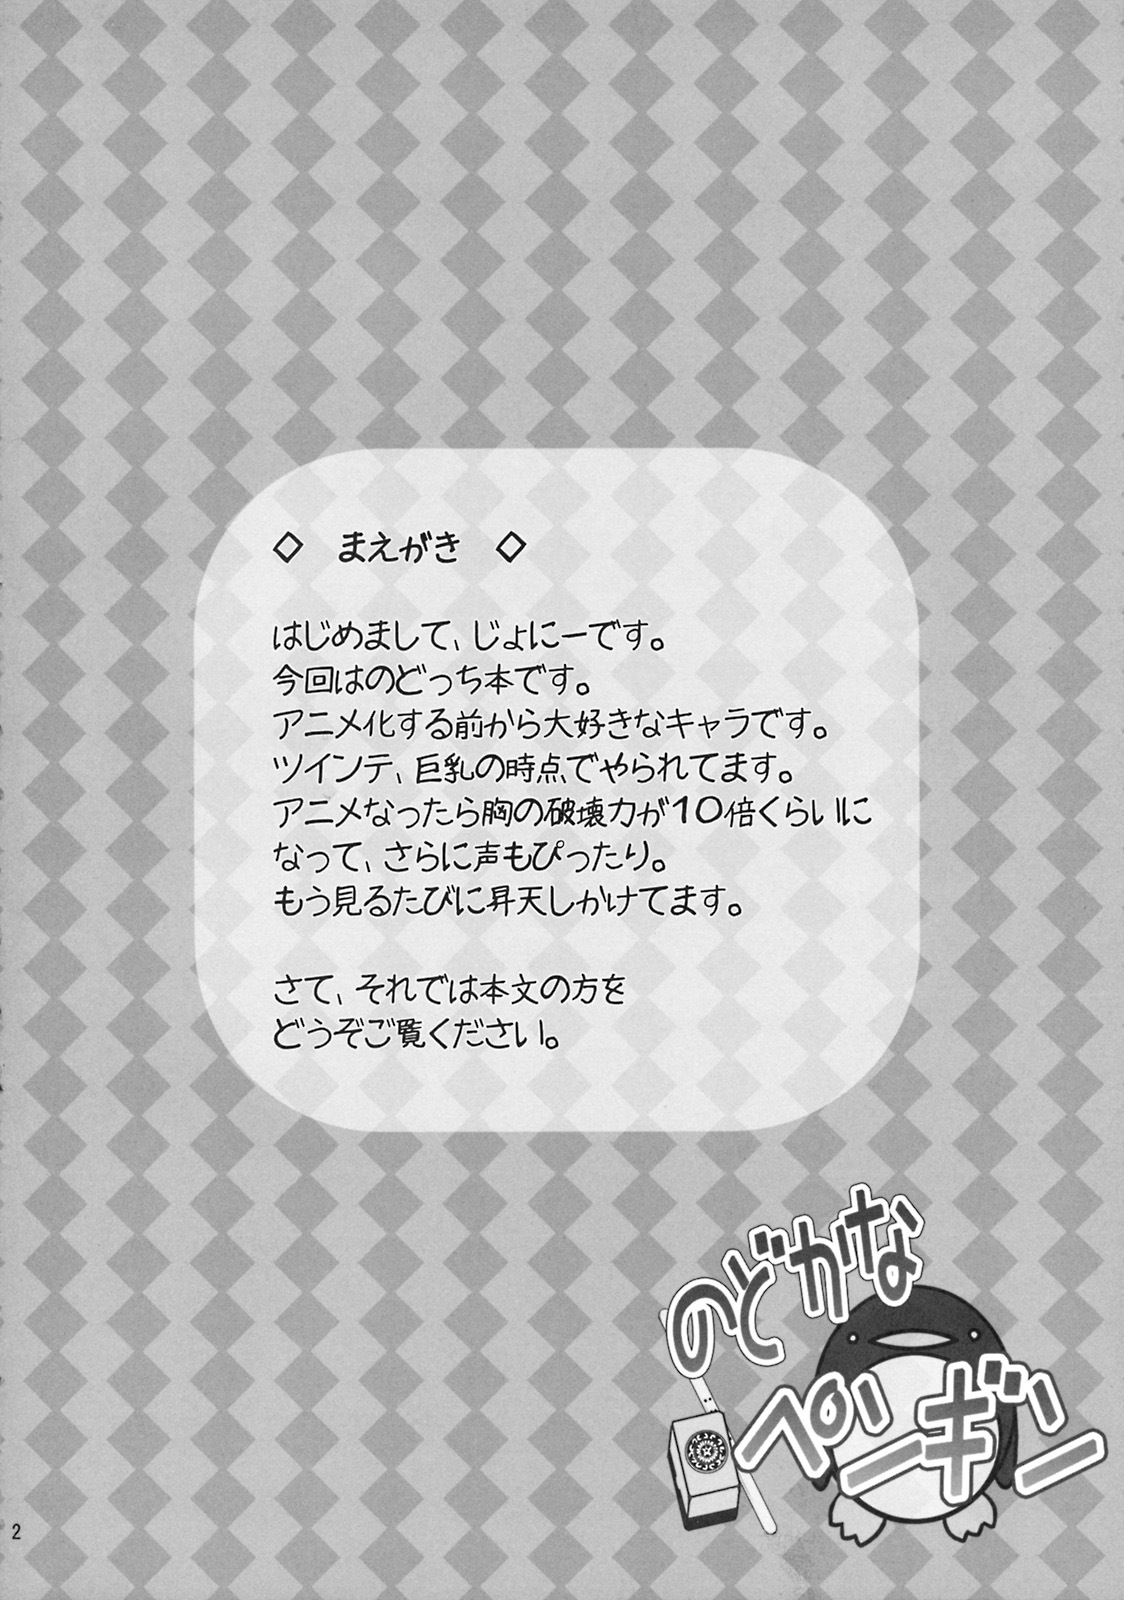 ◇ まえがき ◇
はじめまして、じょにーです。
今回はのどっち本です。
アニメ化する前から大好きなキャラです。
ツインテ、巨乳の時点でやられてます。
アニメなったら胸の破壊力が10倍くらいに
なって、さらに声もぴったり。
もう見るたびに昇天しかけてます。
さて、それでは本文の方を
どうぞご覧ください。
のどかな
ペンギン
2